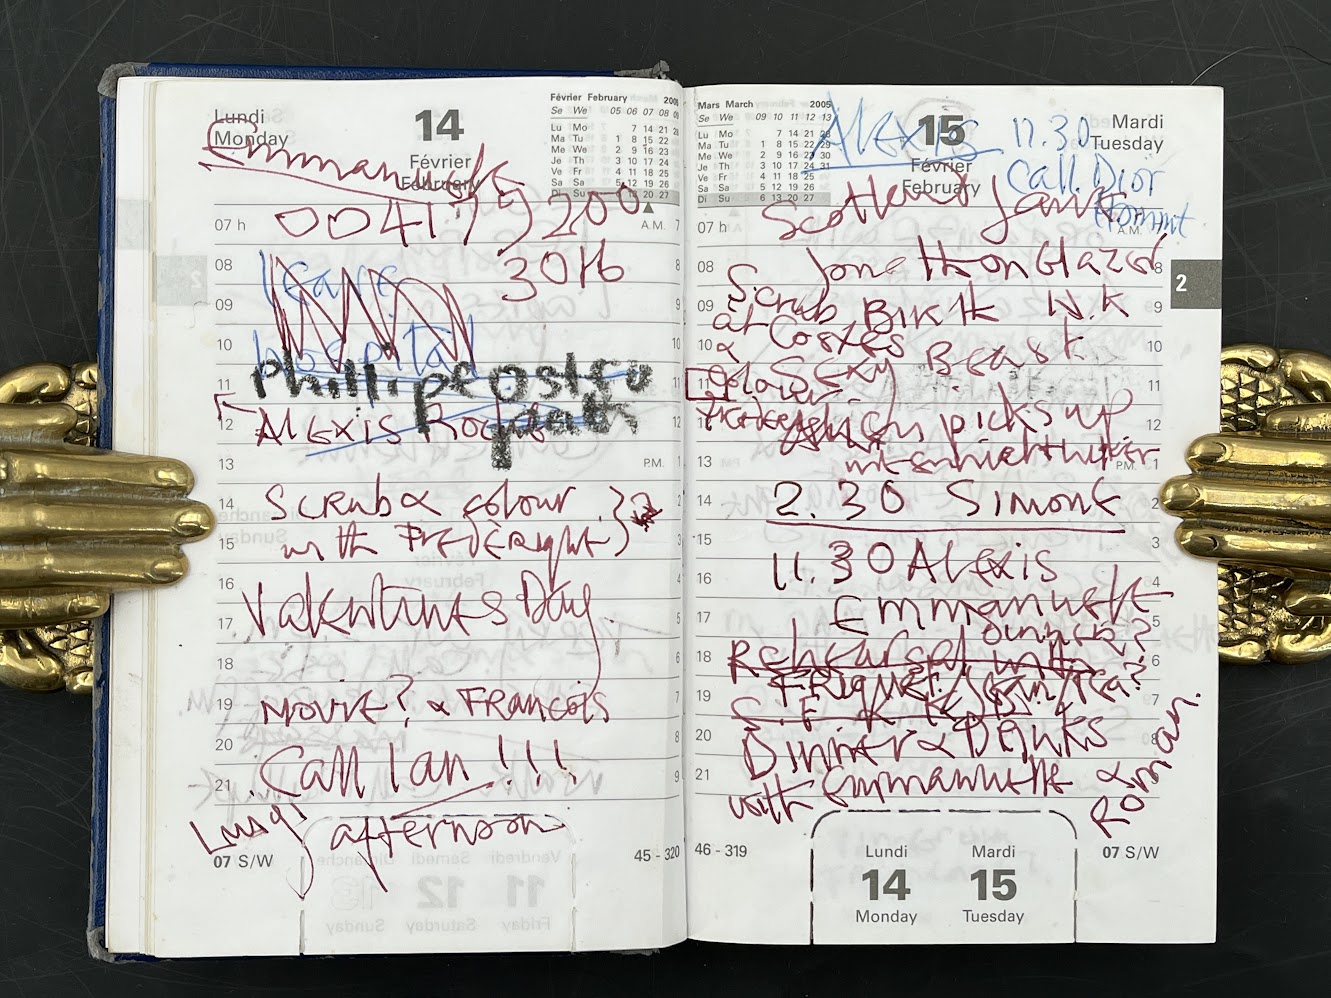 Lundi
Monday
14
Février
February
Février February 2005
Se We 05 06 07 08 09
Lu Mo 7 14 21 28
Ma Tu 1 8 15 22
Me We 2 9 16 23
Je Th 3 10 17 24
Ve Fr 4 11 18 25
Sa Sa 5 12 19 26
Di Su 6 13 20 27
07 h
A.M. 7
3016
08
8
leave
09
9
10
10
hospital
11
11
Phillipe osteo
path
12
12
Alexis Roche
13
P.M. 1
14
2
Scrub & colour
15
3
with Frederight
16
4
Valentines Day
17
5
18
6
19
7
Movie? & Francois
20
8
Call Ian !!!
21
9
Luigi
afternoon
07 S/W
45 - 320
Mars March 2005
Se We 09 10 11 12 13
Lu Mo 7 14 21 28
Ma Tu 1 8 15 22 29
Me We 2 9 16 23 30
Je Th 3 10 17 24 31
Ve Fr 4 11 18 25
Sa Sa 5 12 19 26
Di Su 6 13 20 27
15
Février
February
Mardi
Tuesday
Alexis 11.30
Call Dior
Homme
07 h
A.M.
08
8
Jonathon Glazer
2
09
9
Scrub Birth N.K
at Costes
10
10
& Sexy Beast
11
11
colour
12
12
picks up
13
P.M. 1
14
2
2.30 Simone
15
3
16
4
11.30 Alexis
17
5
Emmanuelle
dinner??
18
6
Rehearsal with
19
7
20
8
Dinner & Drinks
21
with Emmanuelle & Roman.
46 - 319
07 S/W
Lundi Mardi
14 15
Monday Tuesday